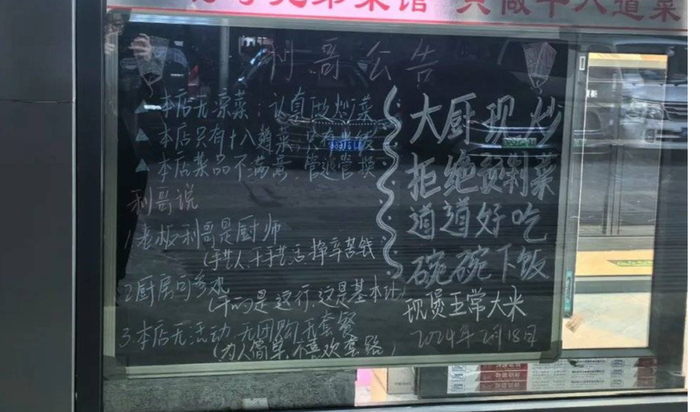 菜馆 只做十八道菜
利哥公告
▲本店无凉菜:认真做炒菜
▲本店只有十八道菜,只有
▲本店菜品不满意 管退管换
利哥说
1.老板利哥是厨师
(手艺人、干手艺活挣辛苦钱
2.厨房可参观
(干的是这行,这是基本功)
3.本店无活动 无团购 无套餐
(为人简单 不喜欢套路)
大厨现炒
拒绝预制菜
道道好吃
碗碗下饭
现煲五常大米
2024年 月18日